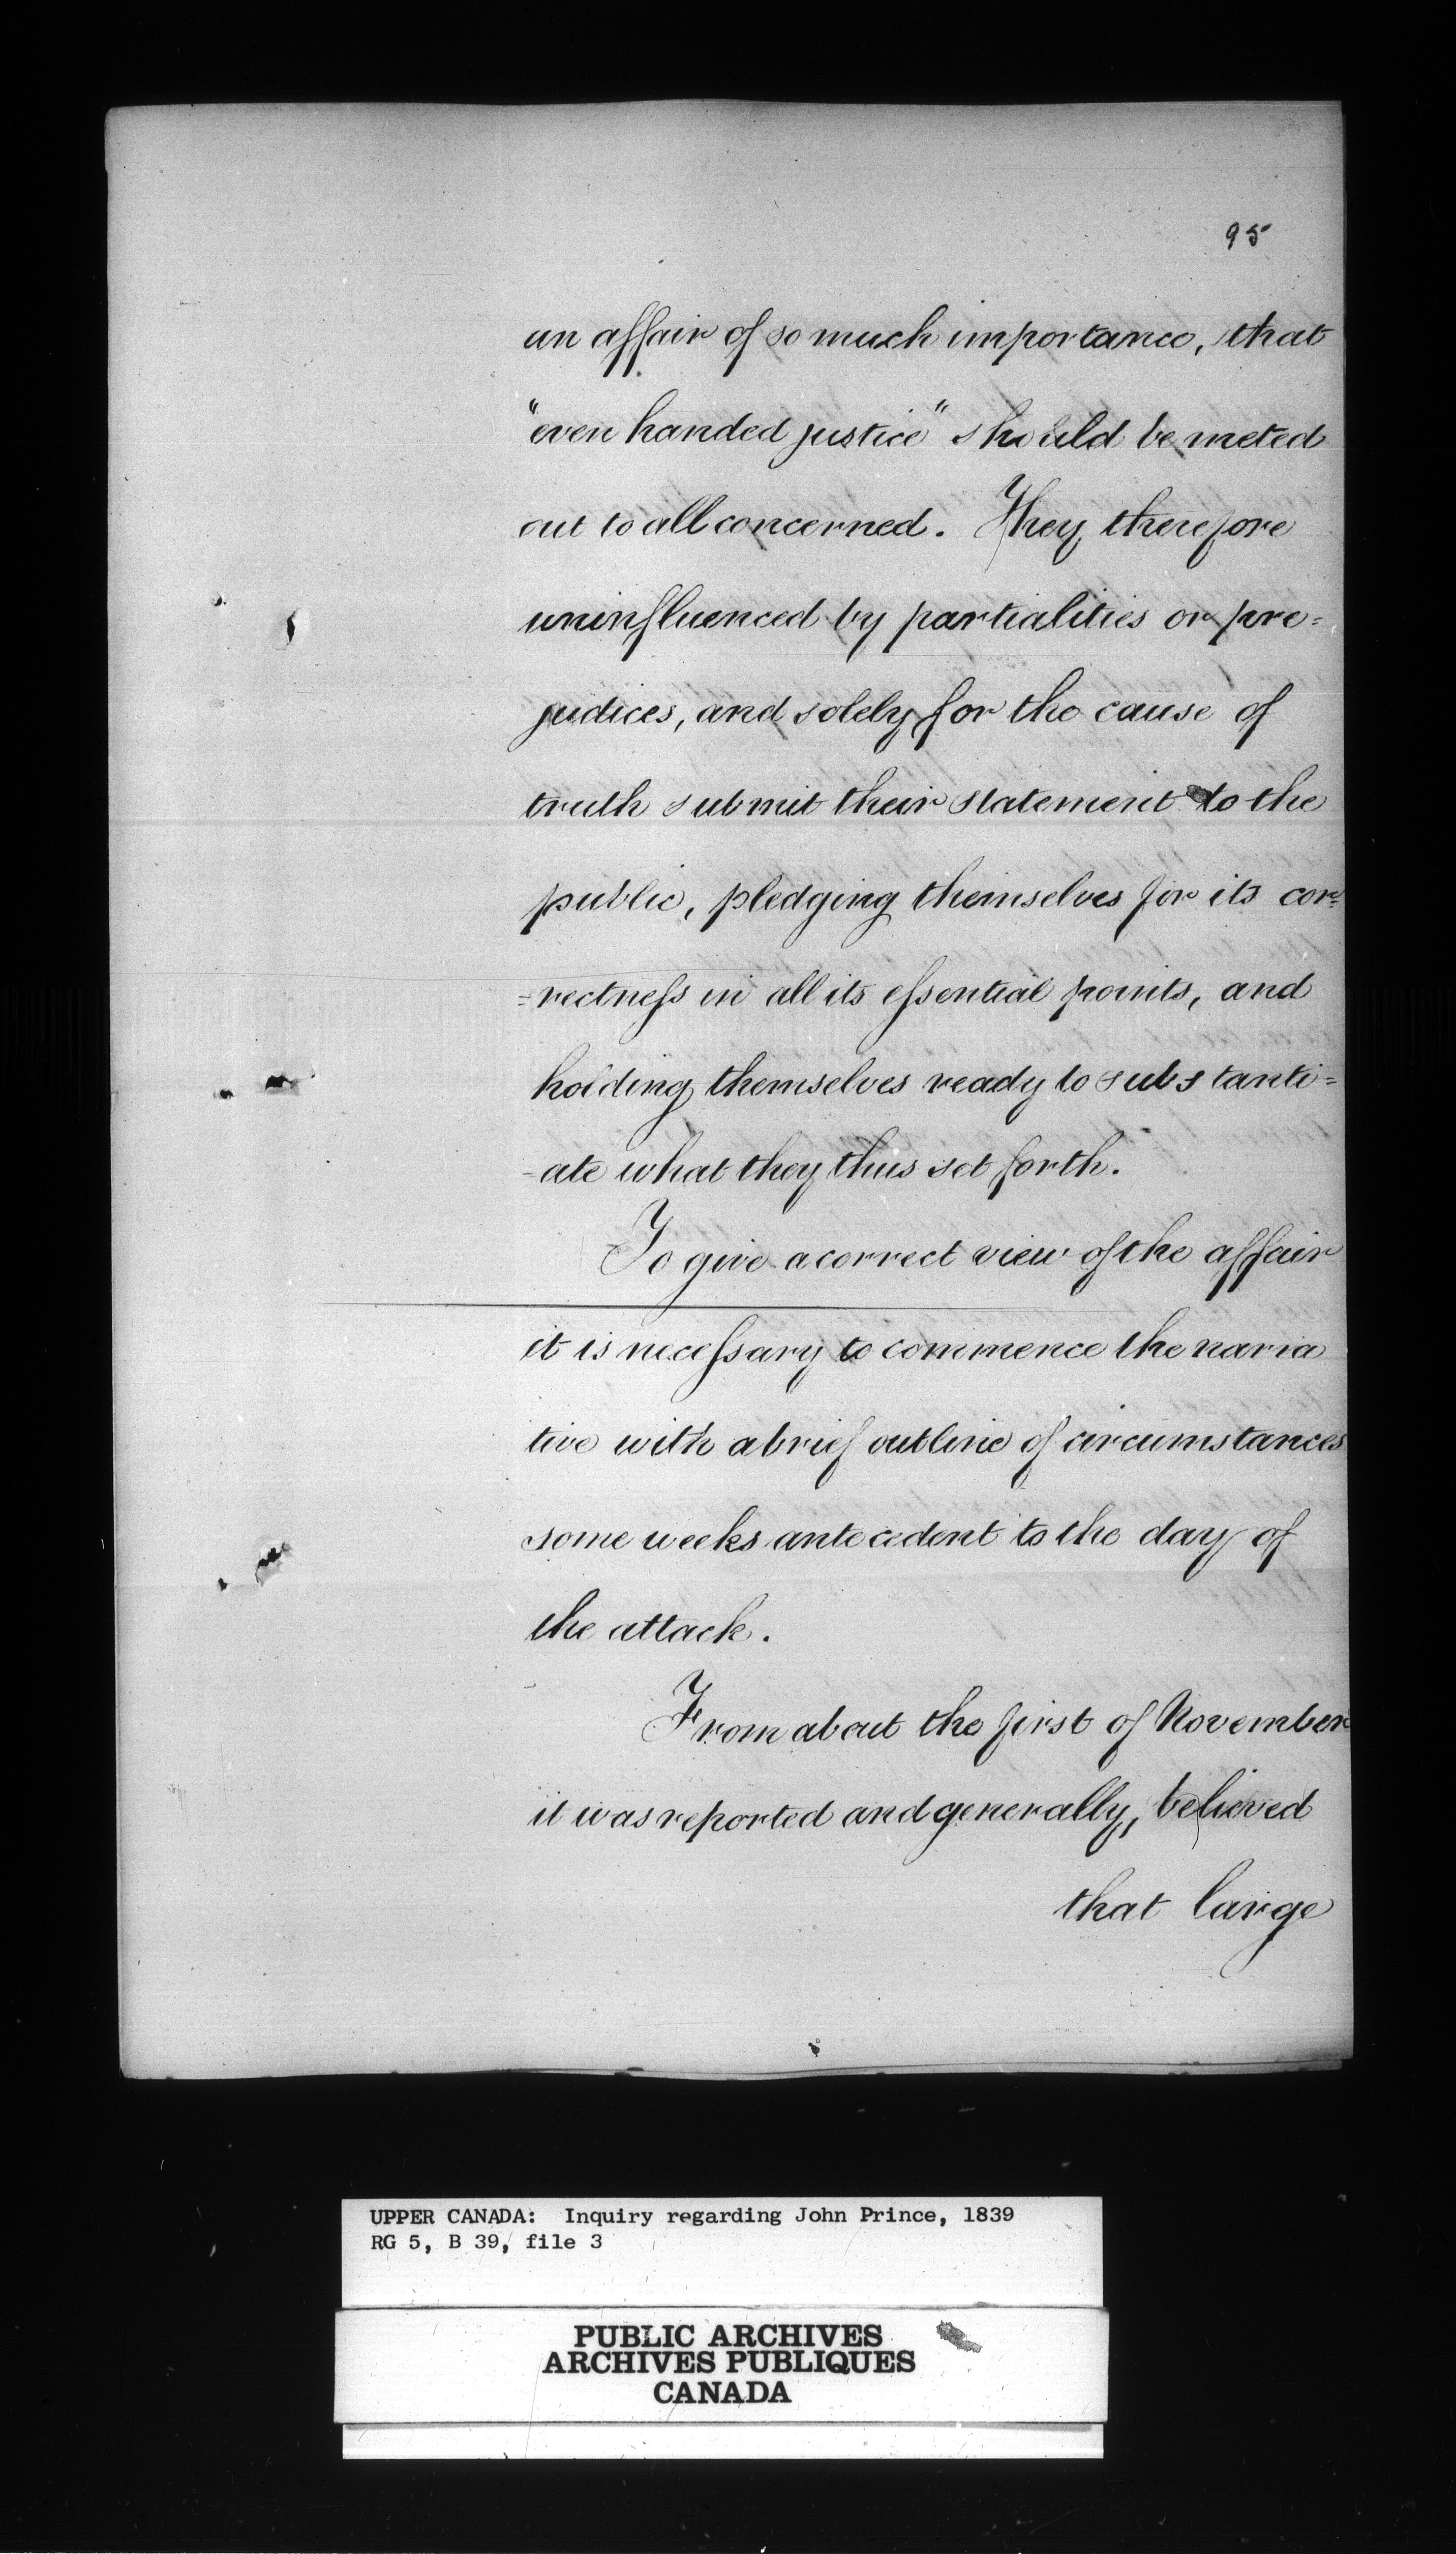 95
an affair of so much importance, that
"even handed justice" should be meted
out to all concerned. They therefore
uninfluenced by partialities or pre=
judices, and solely for the cause of
truth submit their statement to the
public, pledging themselves for its cor=
=rectness in all its essential points, and
holding themselves ready to substanti=
-ate what they thus set forth.
To give a correct view of the affair
it is necessary to commence the narra
tive with a brief outline of circumstances
some weeks antecedent to the day of
the attack.
From about the first of November
it was reported and generally, believed
that large
UPPER CANADA: Inquiry regarding John Prince, 1839
RG 5, B 39, file 3
PUBLIC ARCHIVES
ARCHIVES PUBLIQUES
CANADA